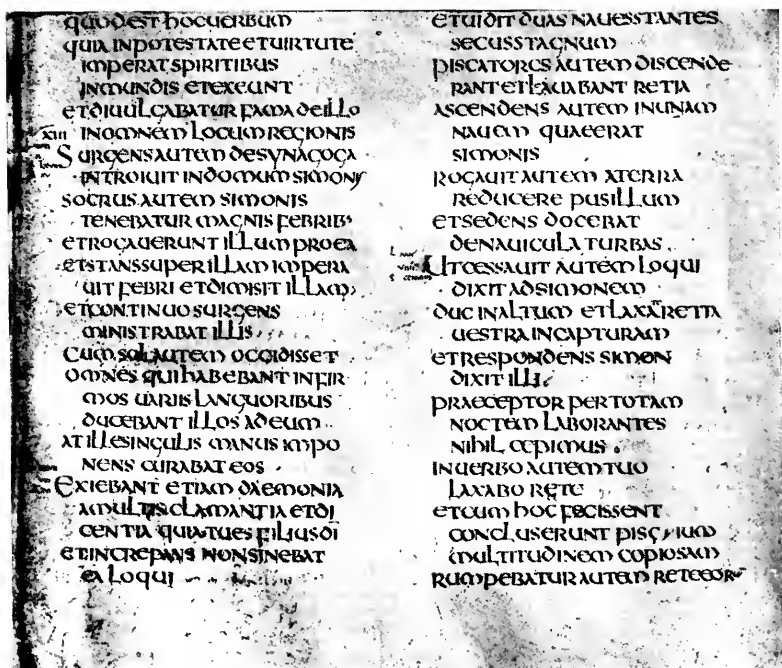 QUODEST HOCUERBUM
QUIA INPOTESTATE ETUIRTUTE
IMPERAT SPIRITIBUS
INMUNDIS ETEXEUNT
ETDIUULGABATUR FAMA DEILLO
XIII INOMNEM LOCUM REGIONIS
SURGENS AUTEM DESYNAGOGA
INTROIUIT INDOMUM SIMONIS
SOCRUS AUTEM SIMONIS
TENEBATUR MAGNIS FEBRIB
ETROGAUERUNT ILLUM PROEA
ETSTANS SUPER ILLAM IMPERA
UIT FEBRI ETDIMISIT ILLAM
ETCONTINUO SURGENS
MINISTRABAT ILLIS
CUM SOL AUTEM OCCIDISSET
OMNES QUI HABEBANT INFIR
MOS UARIIS LANGUORIBUS
DUCEBANT ILLOS ADEUM
AT ILLE SINGULIS MANUS IMPO
NENS CURABAT EOS
EXIEBANT ETIAM DAEMONIA
AMULTIS CLAMANTIA ETDI
CENTIA QUIA TUES FILIUS DI
ETINCREPANS NONSINEBAT
EA LOQUI
ETUIDIT DUAS NAUES STANTES
SECUS STAGNUM
PISCATORES AUTEM DISCENDE
RANT ETLAUABANT RETIA
ASCENDENS AUTEM INUNAM
NAUEM QUAEERAT
SIMONIS
ROGAUIT AUTEM ATERRA
REDUCERE PUSILLUM
ETSEDENS DOCEBAT
DENAUICULA TURBAS
UTCESSAUIT AUTEM LOQUI
DIXIT ADSIMONEM
DUC INALTUM ETLAXATE RETIA
UESTRA INCAPTURAM
ETRESPONDENS SIMON
DIXIT ILLI
PRAECEPTOR PERTOTAM
NOCTEM LABORANTES
NIHIL CEPIMUS
INUERBO AUTEM TUO
LAXABO RETE
ETCUM HOC FECISSENT
CONCLUSERUNT PISCIUM
MULTITUDINEM COPIOSAM
RUMPEBATUR AUTEM RETE EOR